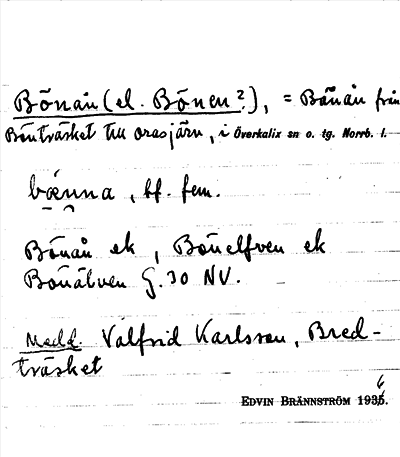 Bönån (el. Bönen?), = Bönån från
Bönträsket till Orasjärv, i Överkalix sn o. tg. Norrb. l.
bænna, bf. fem.
Bönån ek, Bönelfven ek
Bönälven G. 30 NV.
Medd. Valfrid Karlsson, Bred-
träsket
EDVIN BRÄNNSTRÖM 1936.